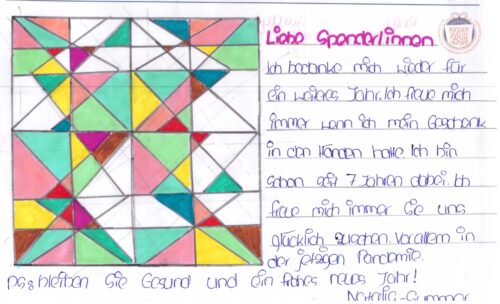 Liebe Spender/innen
Ich bedanke mich wieder für
ein weiteres Jahr. Ich freue mich
immer wenn ich mein Geschenk
in den Händen halte. Ich bin
schon seit 7 Jahren dabei. Ich
freue mich immer Sie uns
glücklich zusehen. Vorallem in
der jetzigen Pandemie.
Das bleiben Sie Gesund und ein frohes neues Jahr!
Natalie